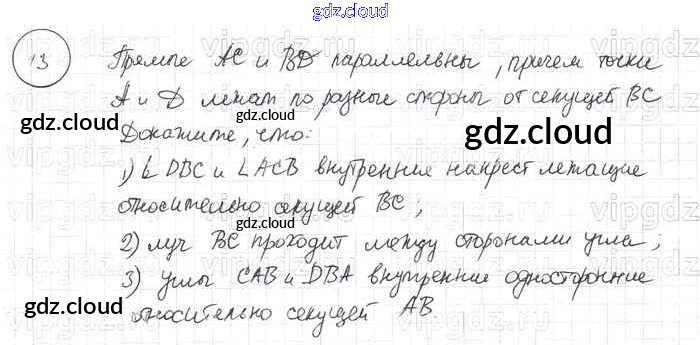 gdz.cloud
13 Прямые AC и BD параллельны, причем точки
A и D лежат по разные стороны от секущей BC
gdz.cloud
gdz.cloud
Докажите, что:
1) ∠ DBC и ∠ ACB внутренние накрест лежащие
относительно секущей BC;
2) луч BC проходит между сторонами угла;
3) углы CAB и DBA внутренние односторонние
gdz.cloud
gdz.cloud
относительно секущей AB.